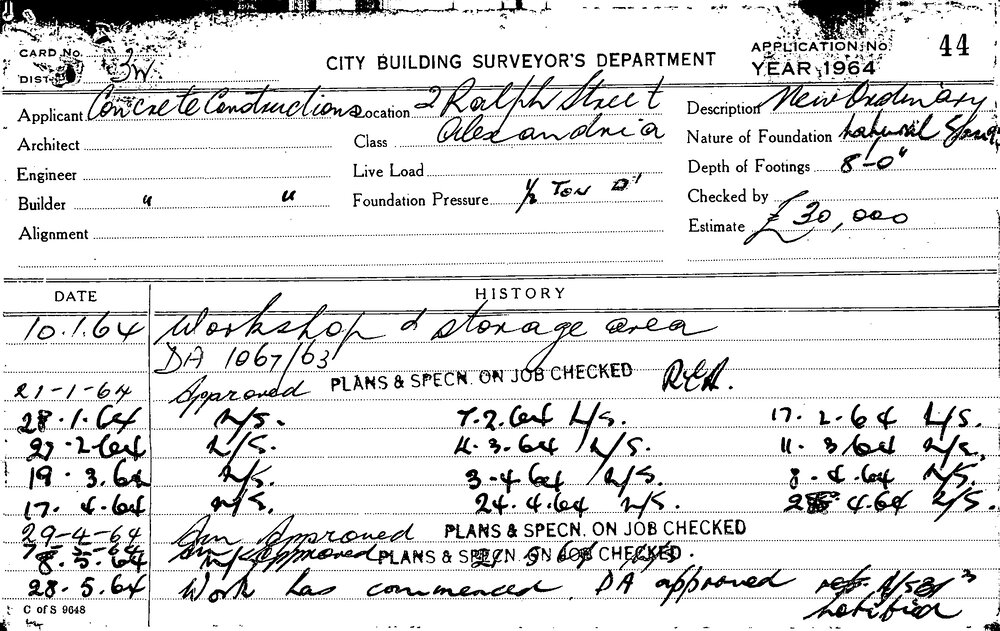 CARD No.
DIST. 3W
CITY BUILDING SURVEYOR'S DEPARTMENT
APPLICATION No. 44
YEAR 1964
Applicant Concrete Constructions
Location 2 Ralph Street
Alexandria
Description New Ordinary
Architect
Class
Nature of Foundation
Engineer
Live Load
Depth of Footings 8-0"
Builder " "
Foundation Pressure 1/2 TON
Checked by
Alignment
Estimate £30,000
DATE HISTORY
10.1.64 Workshop & storage area
DA 1067/63
21-1-64 Approved PLANS & SPECN. ON JOB CHECKED
28.1.64 N/S. 7.2.64 N/S. 17.2.64 N/S.
27.2.64 N/S. 11.3.64 N/S. 11.3.64 N/S.
19.3.64 N/S. 3.4.64 N/S. 8.4.64 N/S.
17.4.64 N/S. 24.4.64 N/S. 4.64 N/S.
29-4-64 Am Approved PLANS & SPECN. ON JOB CHECKED
Approved PLANS & SPECN. ON JOB CHECKED.
8.5.64
28.5.64 Work has commenced. DA approved
notified
C of S 9648